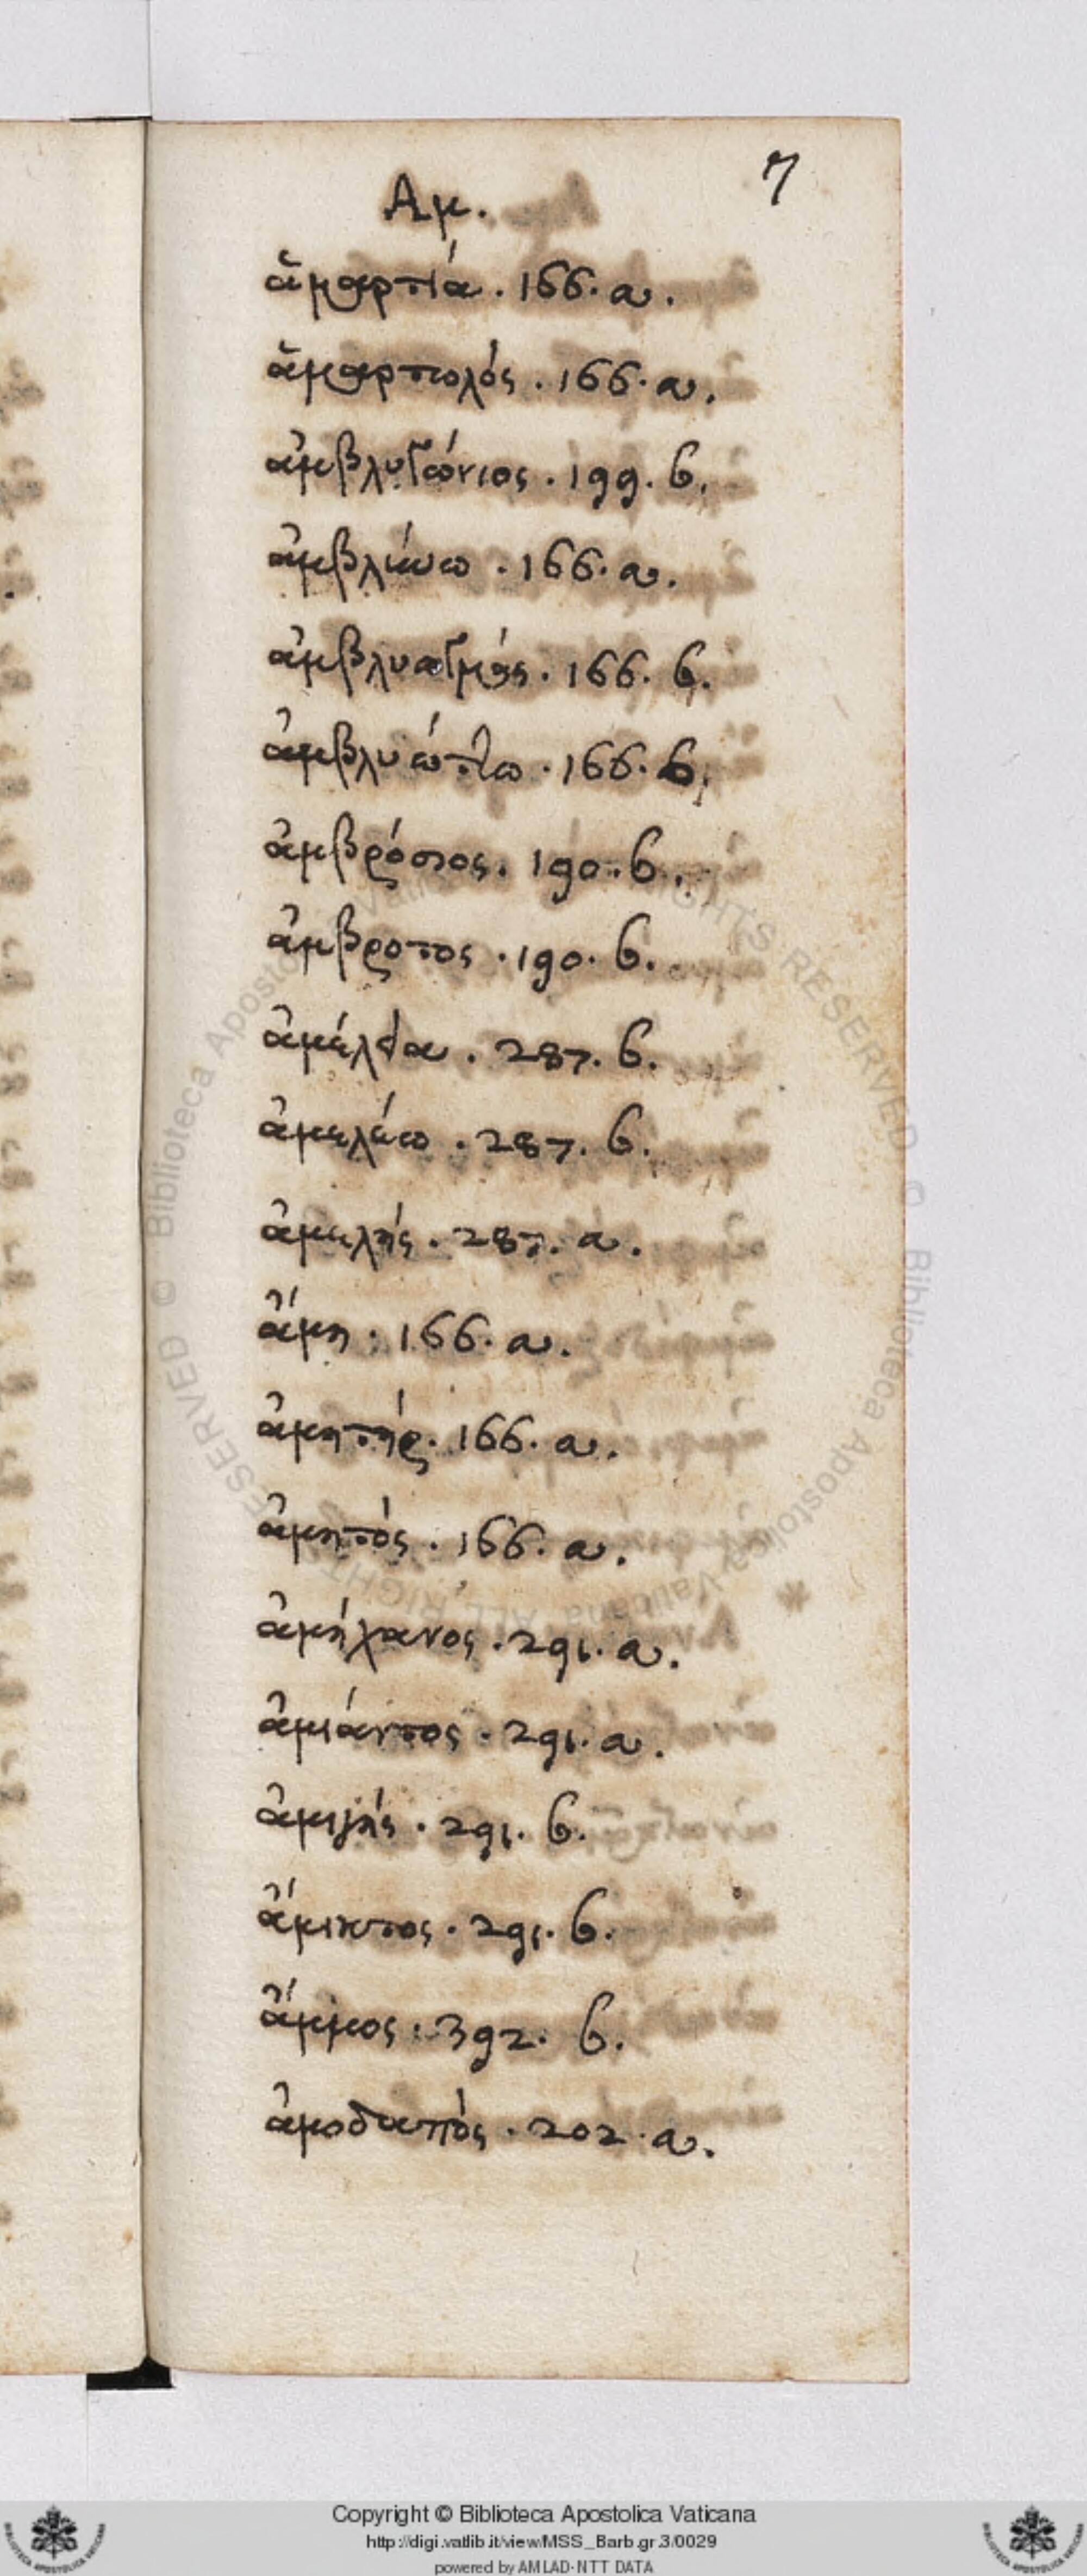 7
Αμ.
ἁμαρτία . 166. a.
ἁμαρτωλός . 166. a.
ἀμβλυγώνιος . 199. b.
ἀμβλύνω . 166. a.
ἀμβλυωγμός . 166. b.
ἀμβλυώττω . 166. b.
ἀμβρόσιος . 190. b.
ἄμβροτος . 190. b.
ἀμέλεια . 287. b.
ἀμελέω . 287. b.
ἀμελής . 287. a.
ἄμη . 166. a.
ἀμητήρ . 166. a.
ἀμητός . 166. a.
ἀμήχανος . 291. a.
ἀμίαντος . 291. a.
ἀμιγής . 291. b.
ἄμικτος . 291. b.
ἄμμος . 392. b.
ἀμοδαπός . 202. a.
Copyright © Biblioteca Apostolica Vaticana
http://digi.vatlib.it/view/MSS_Barb.gr.3/0029
powered by AMLAD-NTT DATA